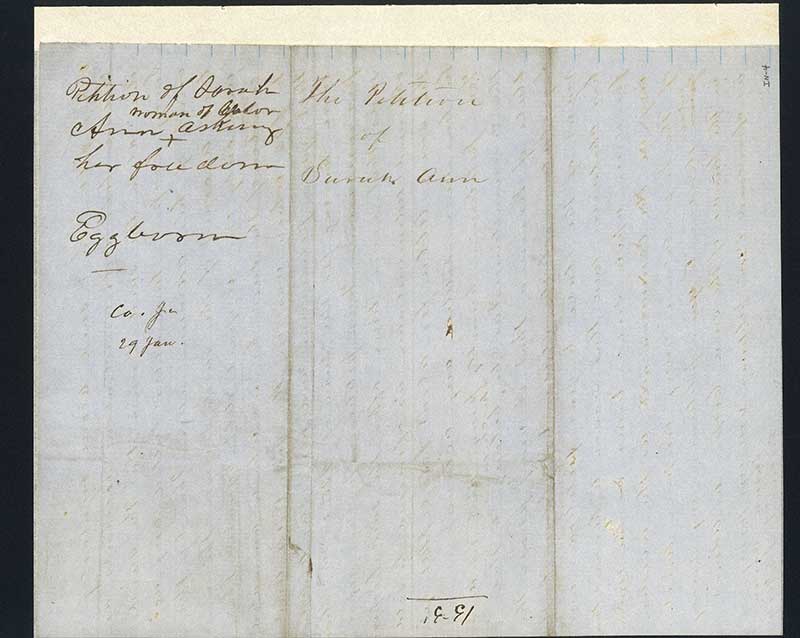 Petition of Sarah
woman of Color
Ann x asking
her freedom
Eggborn
Co. Ju
29 Jan.
The Petition
of
Sarah Ann